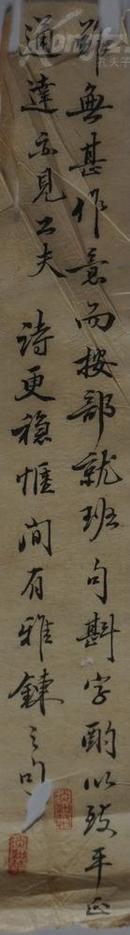 雖無甚作意而按部就班句斟字酌以致平正
通達亦見工夫　詩更穩惬间有雅鍊之句